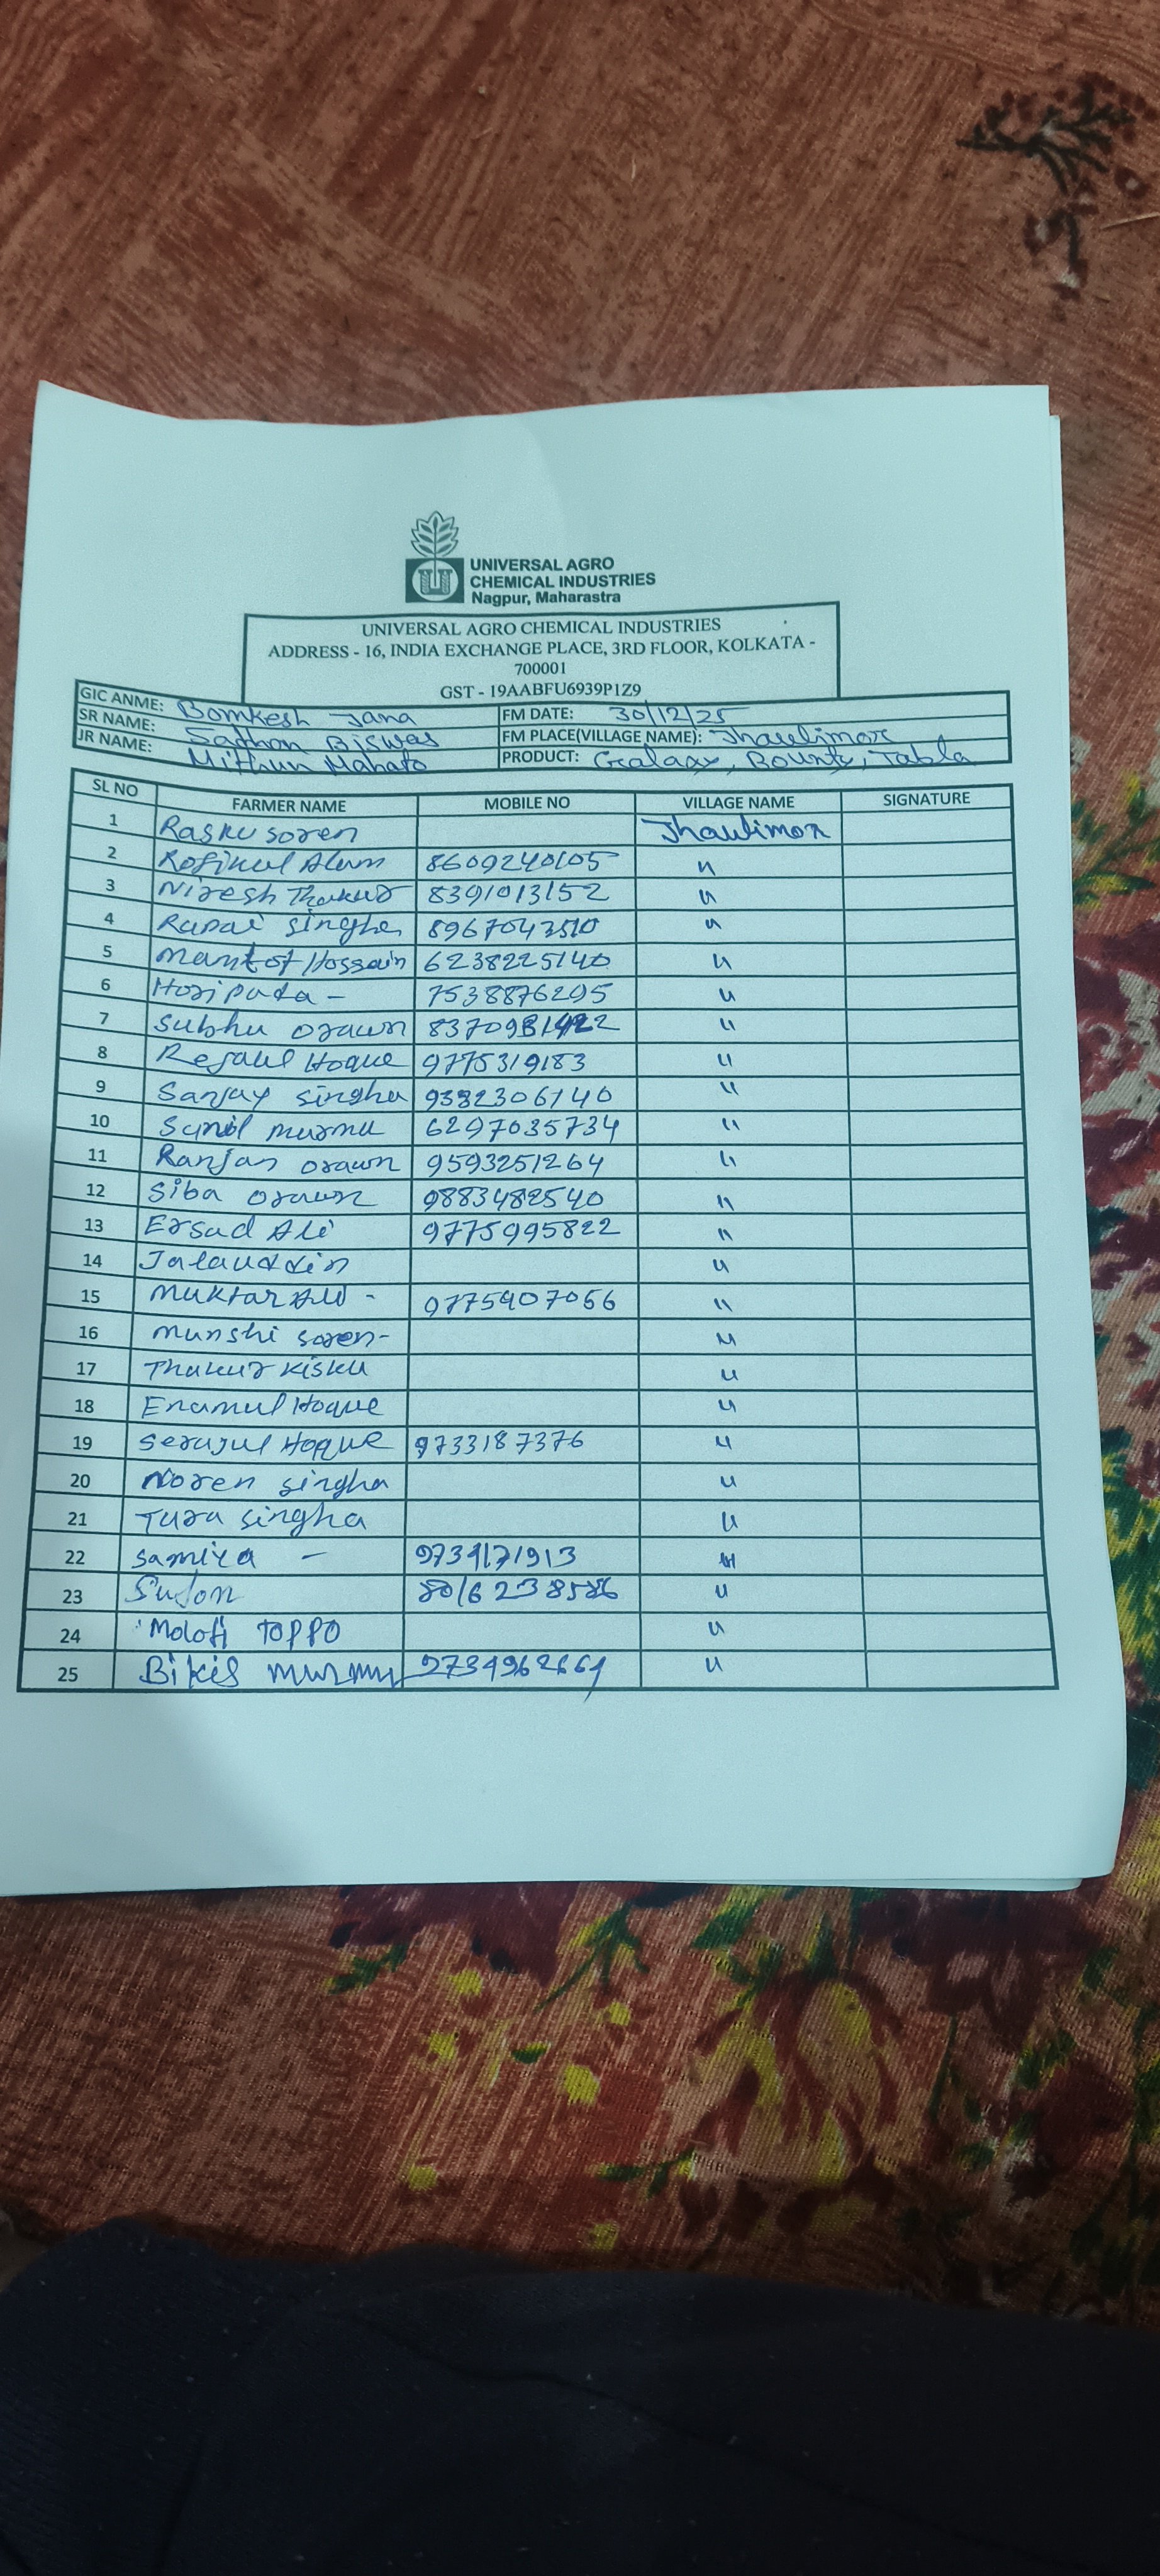 UNIVERSAL AGRO
CHEMICAL INDUSTRIES
Nagpur, Maharastra
UNIVERSAL AGRO CHEMICAL INDUSTRIES
ADDRESS - 16, INDIA EXCHANGE PLACE, 3RD FLOOR, KOLKATA -
700001
GST - 19AABFU6939P1Z9
GIC ANME: Bomkesh Jana FM DATE: 30/12/25
SR NAME: Sadhan Biswas FM PLACE(VILLAGE NAME): Jhaulimor
JR NAME: Mithun Mahato PRODUCT: Galaxy, Bounty, Tabla
SL NO FARMER NAME MOBILE NO VILLAGE NAME SIGNATURE
1 Rasku soren Jhaulimor
2 Rofikul Alam 8609240105 "
3 Niresh Thakur 8391013152 "
4 Rupai singha 8967043510 "
5 Hossain 6238225140 "
6 Horipada - 7538876295 "
7 Subhu orawn "
8 Rejaul Hoque 9775319183 "
9 Sanjay singha 9382306140 "
10 Sunil murmu 6297035734 "
11 Ranjan orawn 9593251264 "
12 Siba orawn 9883482540 "
13 Ersad Ali 9775995822 "
14 Jalauddin "
15 Muktar Ali - 9775907066 "
16 munshi soren- "
17 Thakur kisku "
18 Enamul Hoque "
19 Serajul Hoque 9733187376 "
20 Noren singha "
21 Tura singha "
22 samira - 9734171913 "
23 Sujon "
24 Moloti TOPPO "
25 murmu "